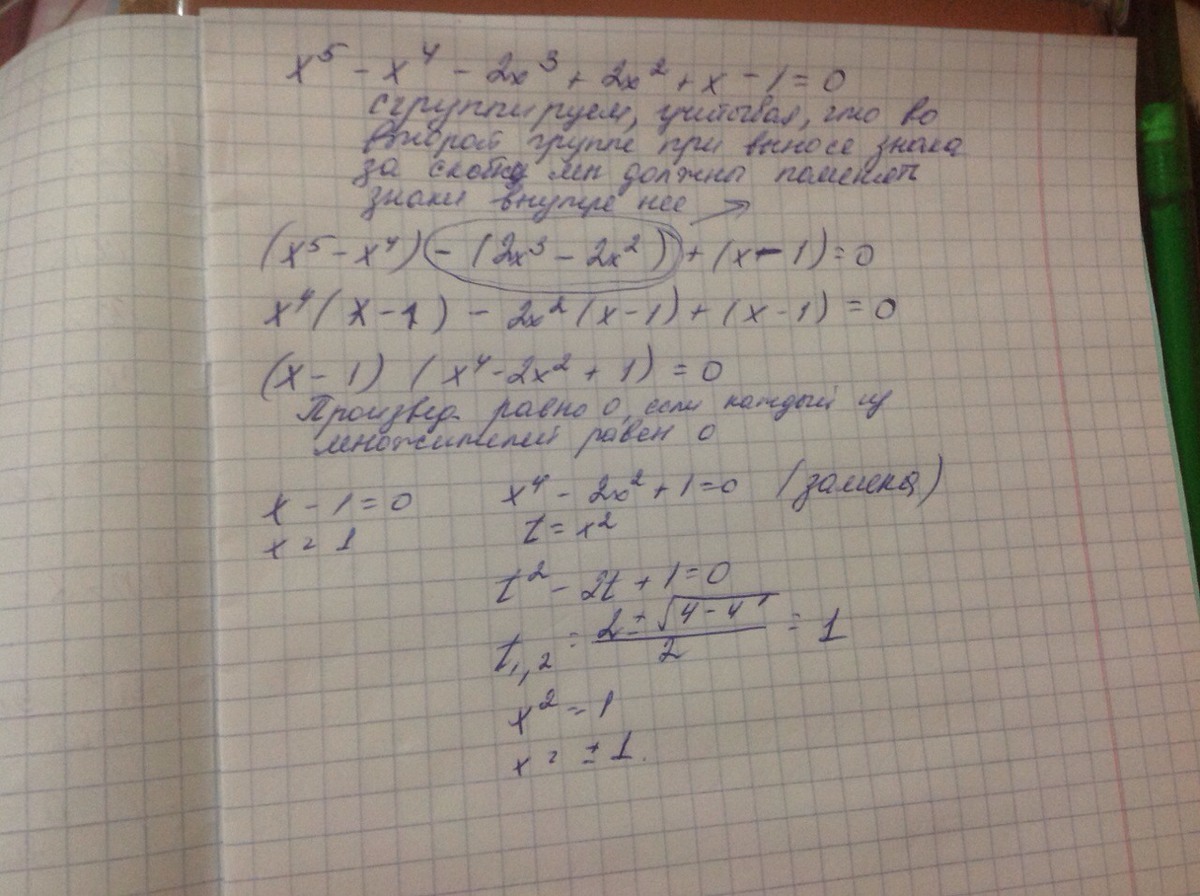 x⁵ - x⁴ - 2x³ + 2x² + x - 1 = 0
сгруппируем, учитывая, что во
второй группе при выносе знака
за скобку мы должны поменять
знаки внутре неё →
(x⁵ - x⁴) - (2x³ - 2x²) + (x - 1) = 0
x⁴(x - 1) - 2x²(x - 1) + (x - 1) = 0
(x - 1) (x⁴ - 2x² + 1) = 0
Произвед. равно 0, если каждый из
множителей равен 0
x - 1 = 0
x = 1
x⁴ - 2x² + 1 = 0 (замена)
t = x²
t² - 2t + 1 = 0
t₁,₂ = (2 ± √(4 - 4))/2 = 1
x² = 1
x = ± 1.